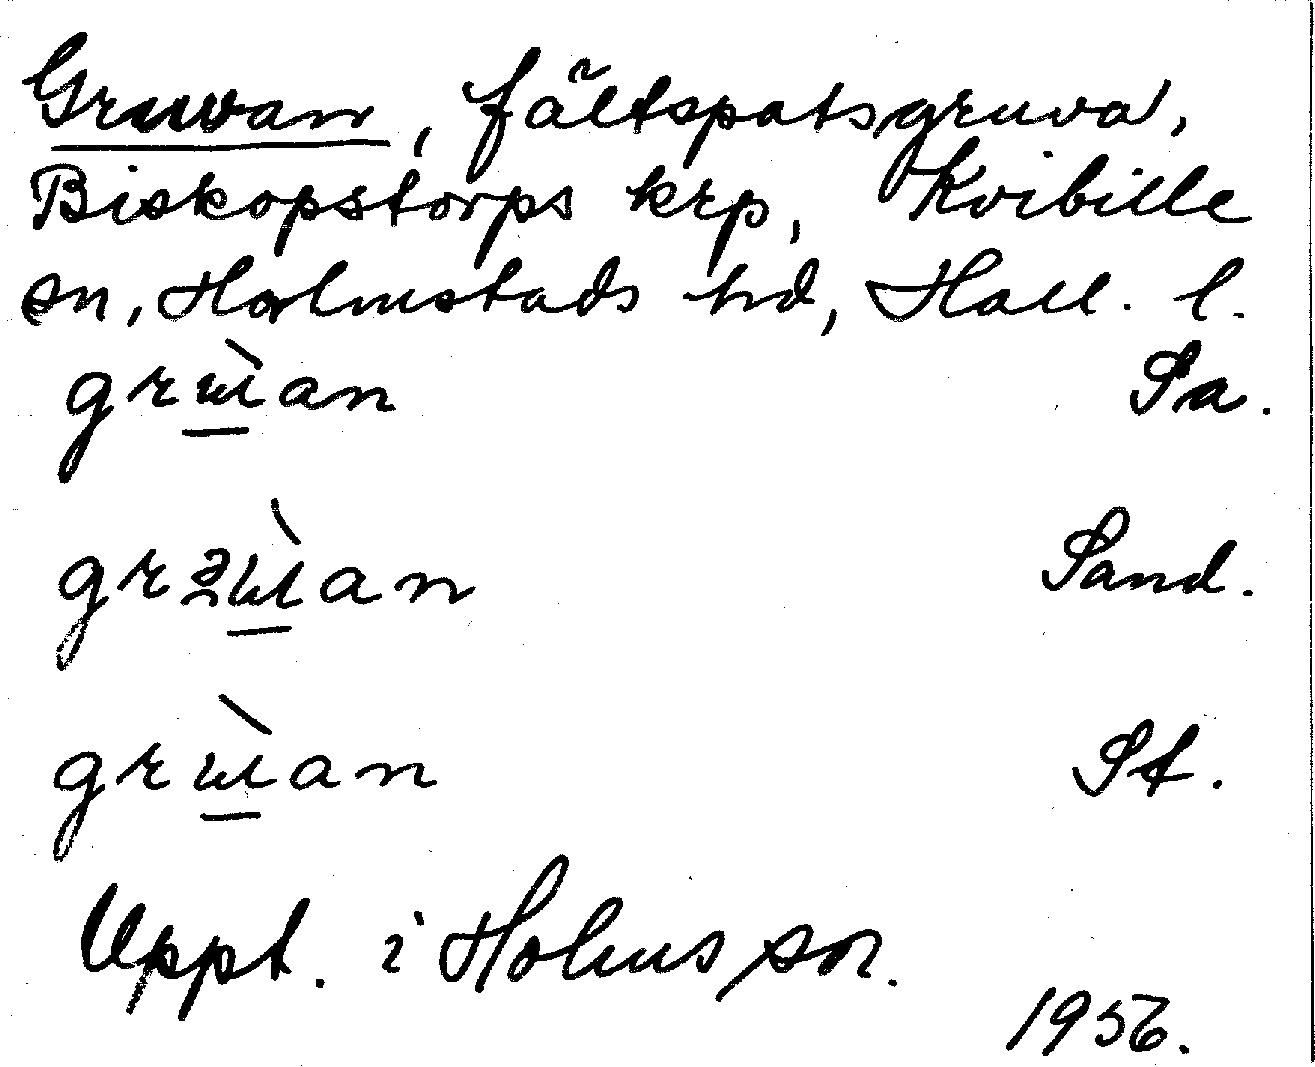 Gruvan, fältspatsgruva,
Biskopstorps krp, Kvibille
sn, Halmstads hd, Hall. l.
grɯ̀an Sa.
grəɯ̀an Sand.
grɯ̀an St.
Uppt. i
1956.